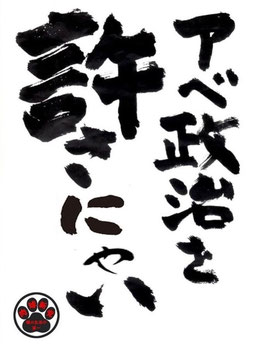 アベ政治を
許さにゃい